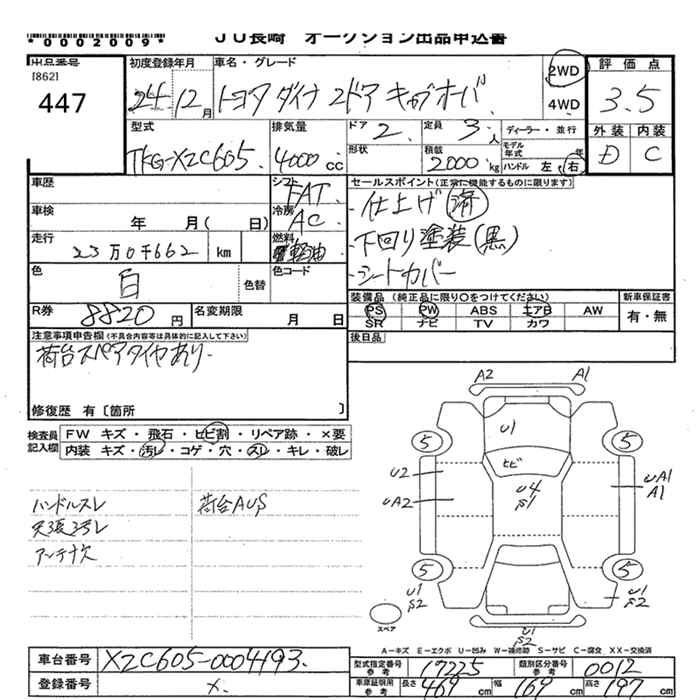 *0002009*
JU長崎 オークション出品申込書
出品番号 [862] 447
初度登録年月 24年 12月
車名・グレード トヨタ ダイナ 2ドア キャブオーバ
2WD 4WD
評価点 3.5
外装 D 内装 C
型式 TKG-XZC605
排気量 4000 CC
ドア 2
定員 3人
ディーラー・並行
形状
積載 2000 kg
モデル年式 年
ハンドル 左・右
車歴
シフト FAT
セールスポイント(正常に機能するものに限ります)
・仕上げ済
・下回り塗装(黒)
・シートカバー
車検 年 月( 日)
冷房 AC
走行 23万0千662 km
燃料 軽油
色 白
色替
色コード
R券 8820円
名変期限 月 日
装備品 (純正品に限り○をつけてください)
PS PW ABS エアB AW
SR ナビ TV カワ
新車保証書 有・無
注意事項申告欄(不具合内容等は具体的に記入して下さい)
荷台スペアタイヤあり
後日品
修復歴 有 [箇所 ]
検査員記入欄
FW キズ・飛石・ヒビ割・リペア跡・×要
内装 キズ・汚レ・コゲ・穴・スレ・キレ・破レ
ハンドルスレ
天張ヨゴレ
アンテナ欠
荷台AUS
A2 A1
U1
5 5
ヒビ
U2
UA2
U4
S1
UA1
A1
5 5
U1
S2
U1
S2
スペア
A-キズ E-エクボ U-凹み W-補修跡 S-サビ C-腐食 XX-交換済
車台番号 XZC605-0004193
登録番号 X
型式指定番号 参考 17225
類別区分番号 参考 0012
車庫証明用 参考 長さ 469 cm 幅 169 cm 高さ 197 cm